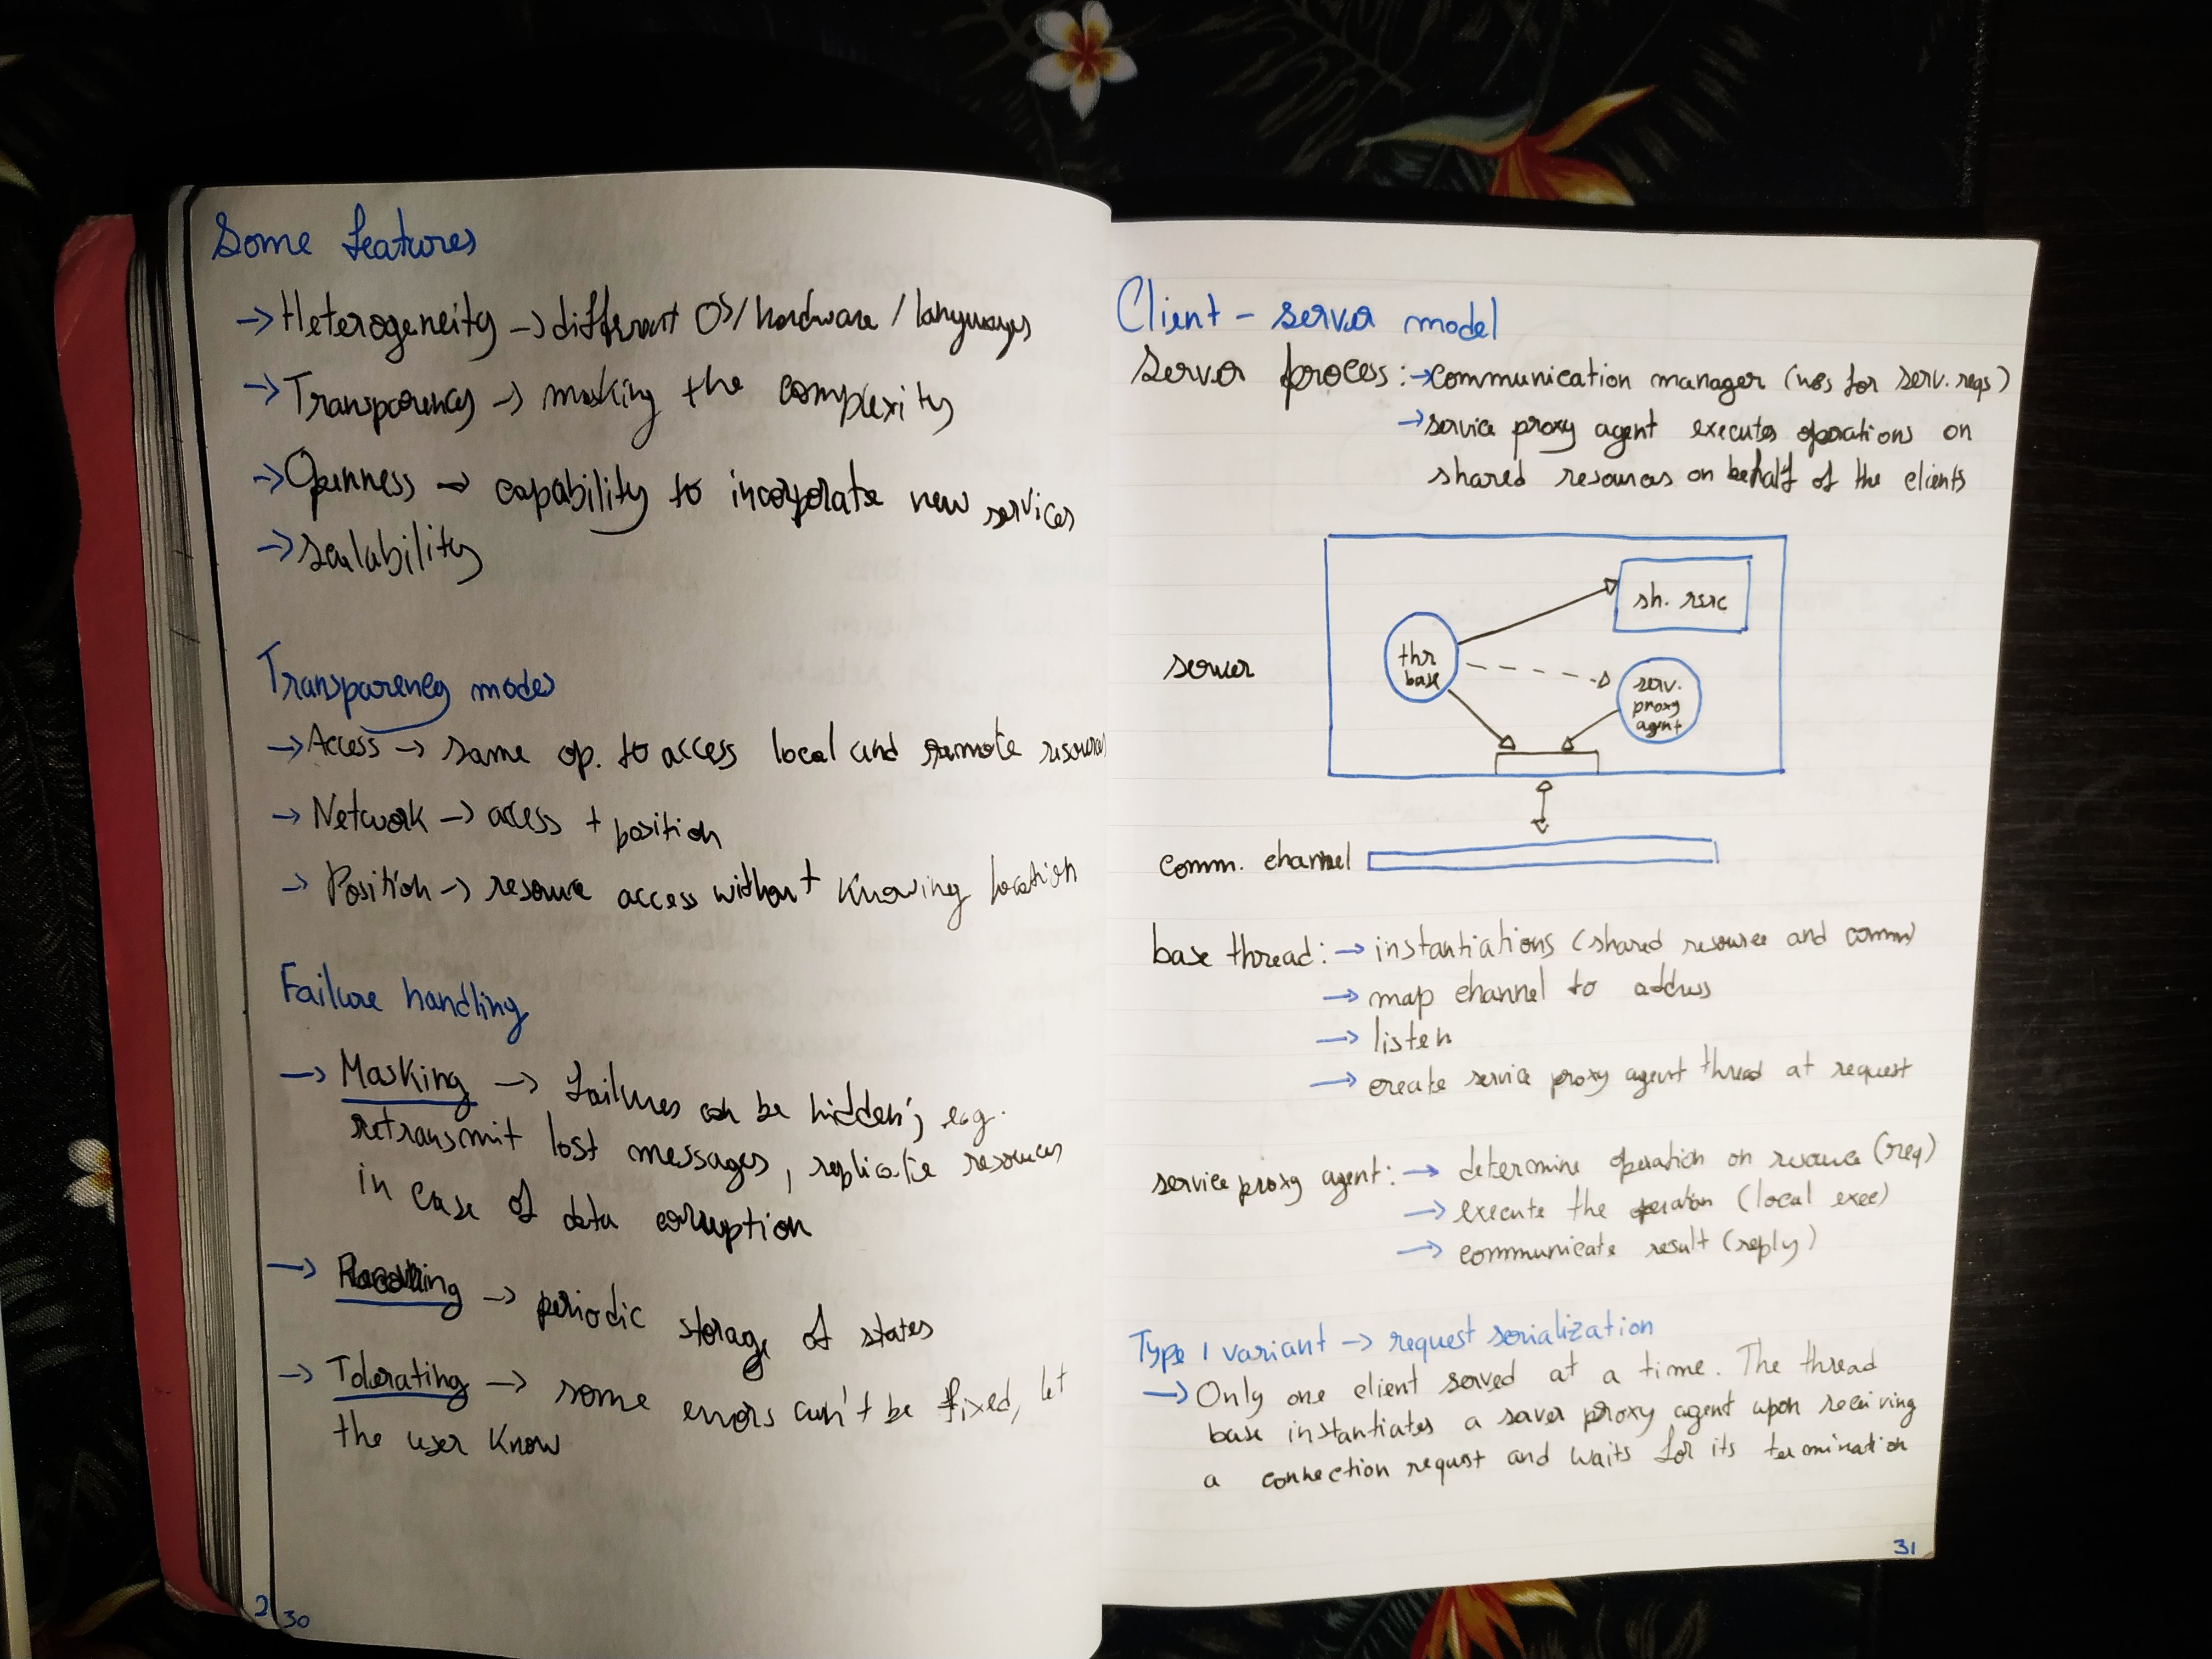 Some features
→ Heterogeneity → different OS/hardware/languages
→ Transparency → masking the complexity
→ Openness → capability to incorporate new services
→ scalability
Transparency modes
→ Access → same op. to access local and remote resources
→ Network → access + position
→ Position → resource access without knowing location
Failure handling
→ Masking → failures can be hidden; e.g.
retransmit lost messages, replicate resources
in case of data corruption
→ → periodic storage of states
→ Tolerating → some errors can't be fixed, let
the user know
2
30
Client - server model
server process: → communication manager ( for serv. reqs)
→ service proxy agent executes operations on
shared resources on behalf of the clients
sh. rsrc
server
thr
base
serv.
proxy
agent
comm. channel
base thread: → instantiations (shared resource and comm)
→ map channel to address
→ listen
→ create service proxy agent thread at request
service proxy agent: → determine operation on resource (req)
→ execute the operation (local exec)
→ communicate result (reply)
Type 1 variant → request serialization
→ Only one client served at a time. The thread
base instantiates a server proxy agent upon receiving
a connection request and waits for its termination
31